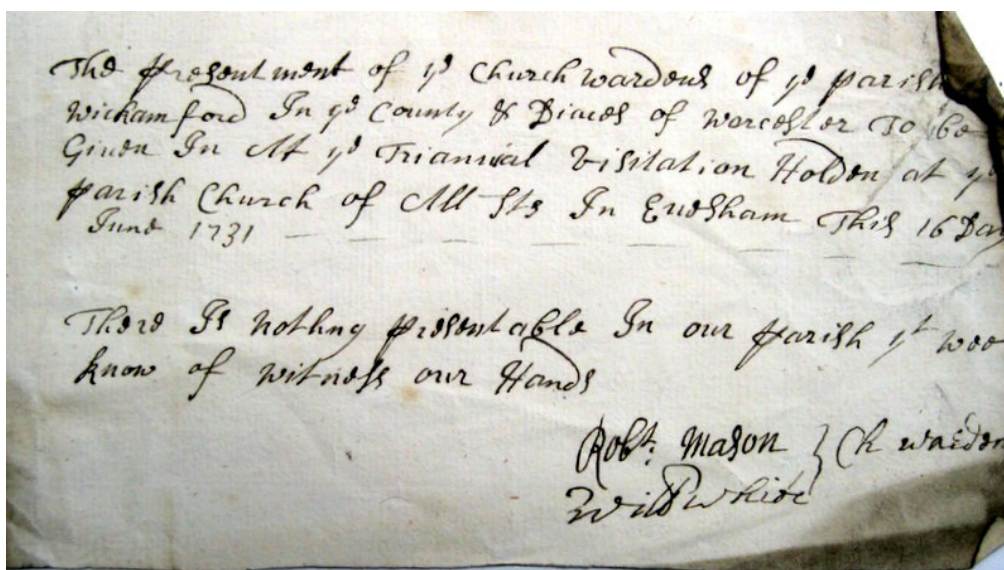 The presentment of ye Church wardens of ye parish
Wickamford In ye County & Diaces of Worcester To be
Given In At ye Trianuial Visitation Holden at ye
parish Church of All Sts In Euesham This 16 Day
June 1731
There Is nothng presentable In our parish yt wee
know of witness our Hands
Robt: Mason } Ch warden
Will White